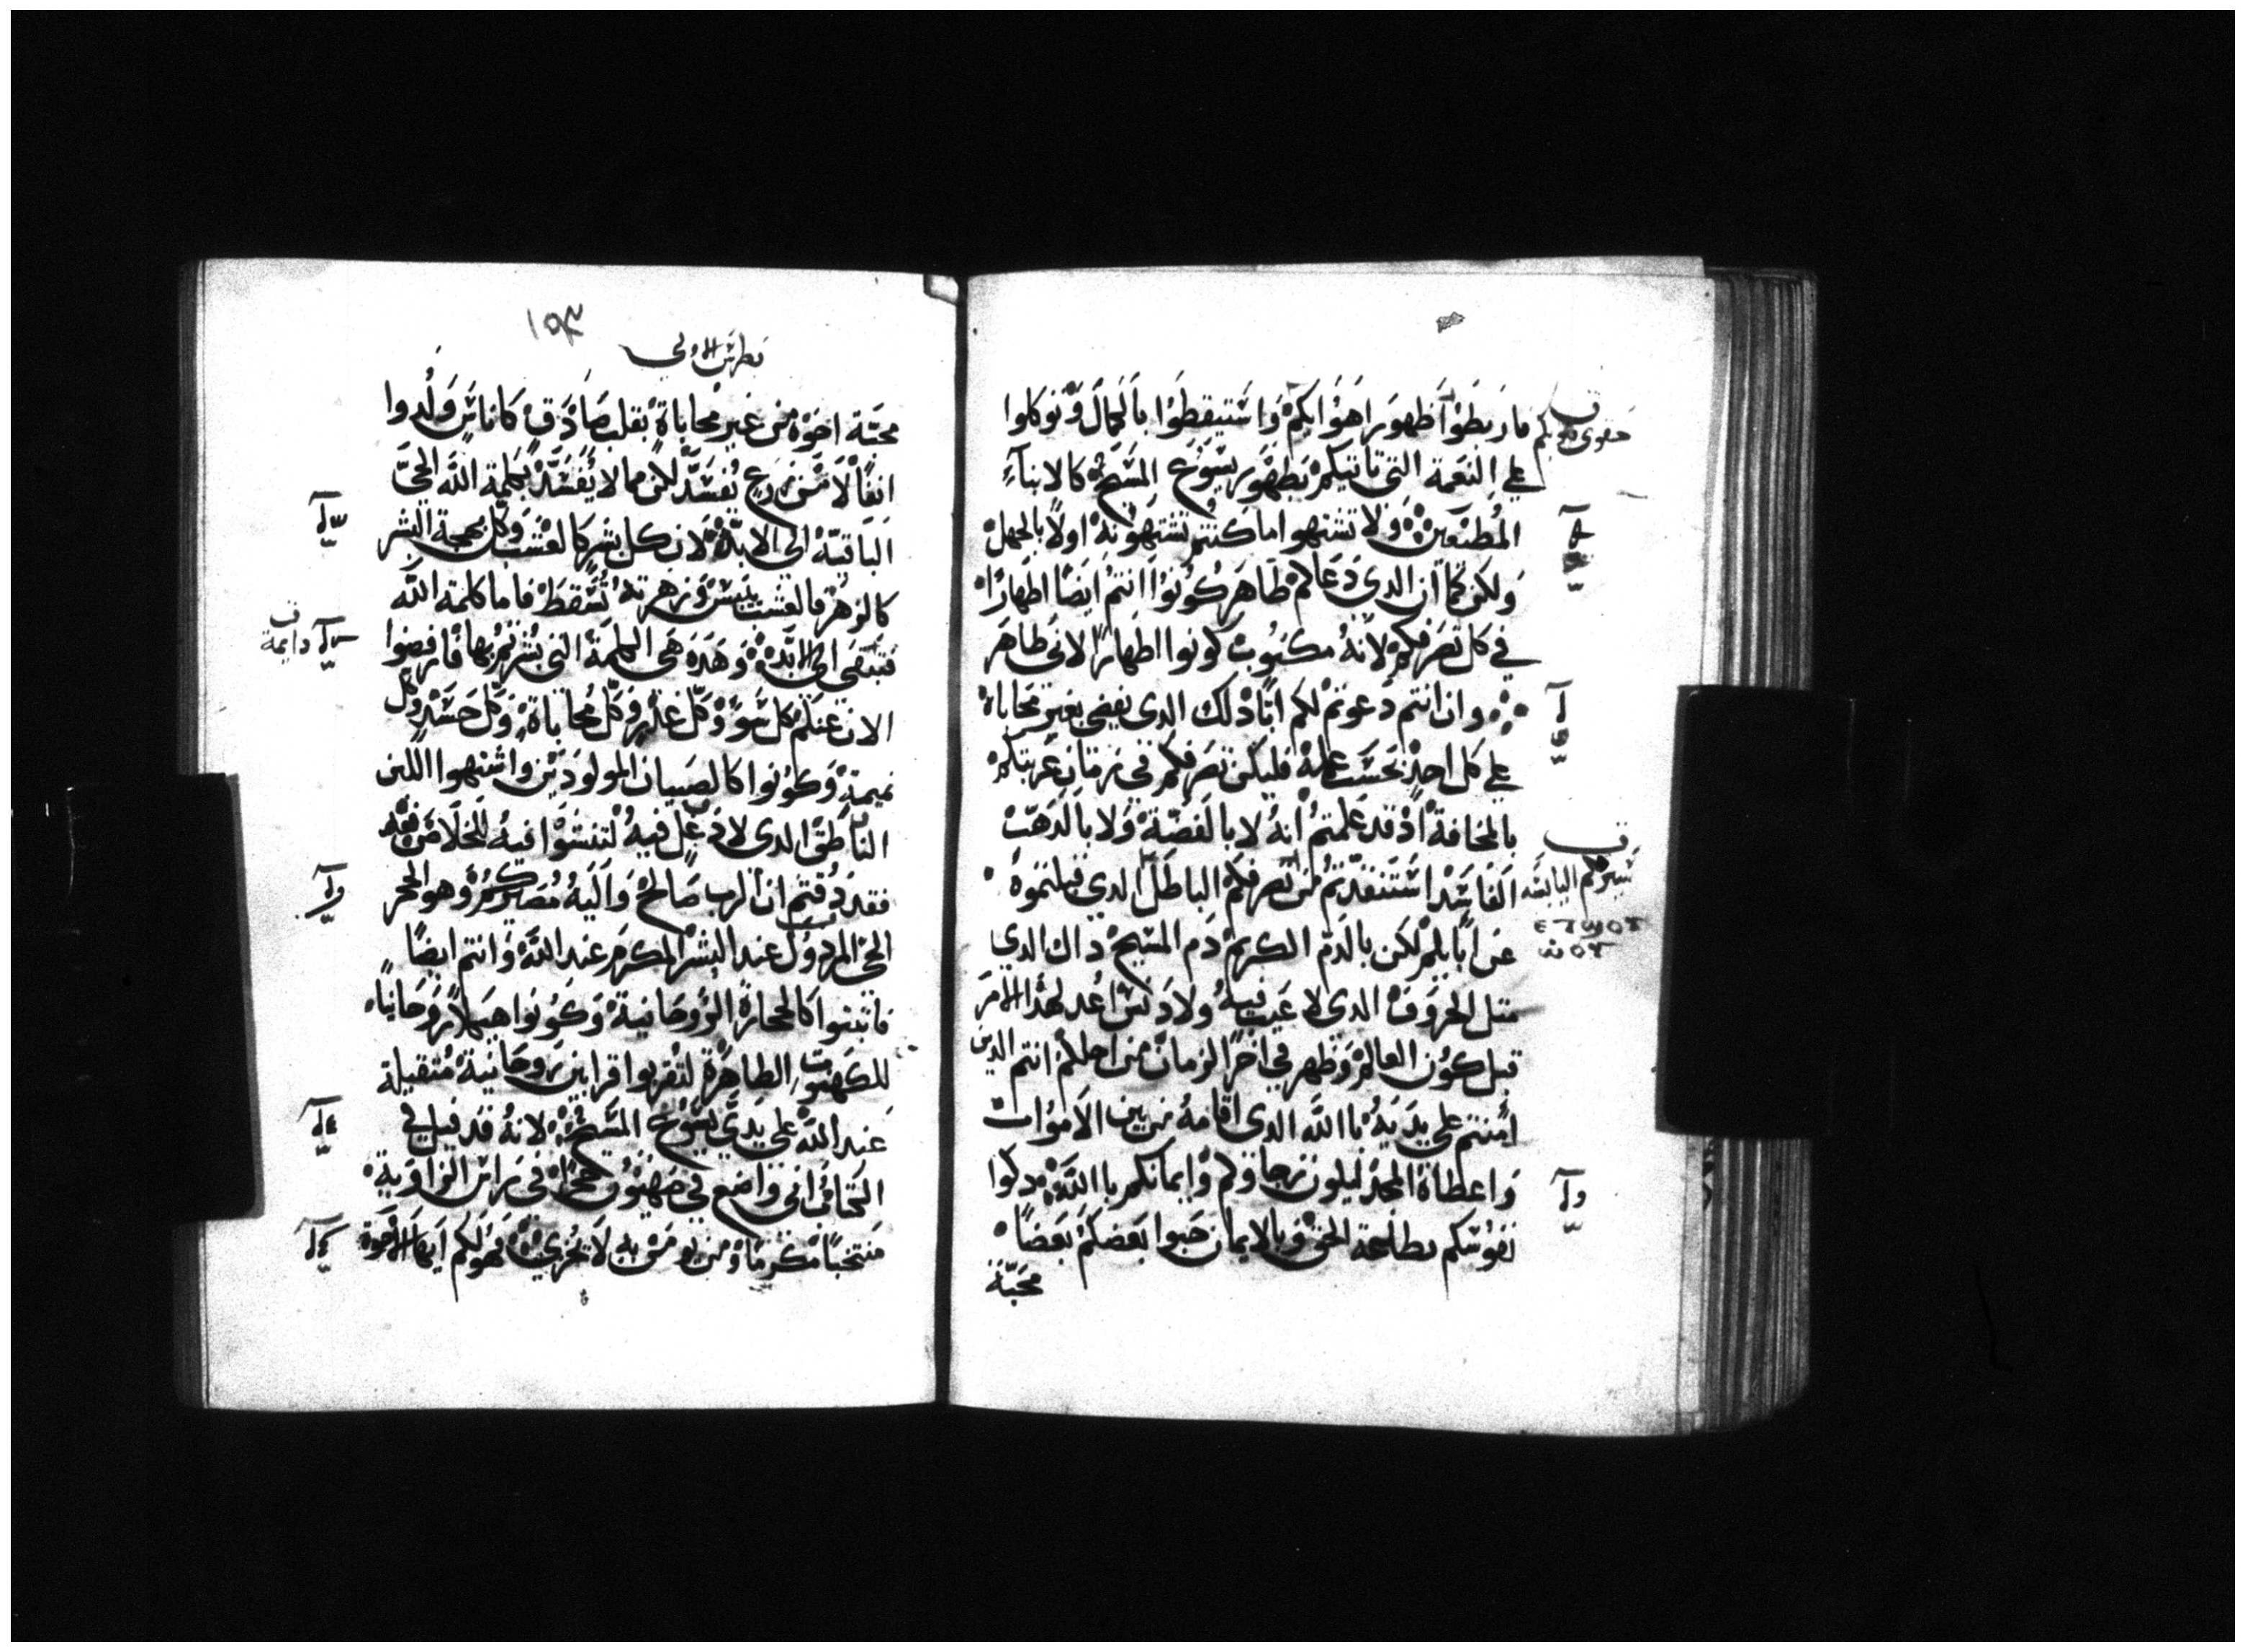 فاربطوا ظهور اهوايكم واستيقظوا بالكمال وتوكلوا
علي النعمة التي تاتيكم بظهور يسوع المسيح كالابناء
المطيعين ولا تشتهوا ما كنتم تشتهونه اولاً بالجهل
ولكن كما ان الدي دعاكم طاهر كونوا انتم ايضًا اطهارًا
في كل تصرفكم لانه مكتوب كونوا اطهارًا لاني طاهر
وان انتم دعوتم لكم ابًا دلك الدي يقضي بغير محاباة
علي كل احد بحسب عمله فليكن تصرفكم في زمان غربتكم
بالمخافة اد قد علمتم انه لا بالفضة ولا بالدهب
الفاسد استنقدتم من تصرفكم الباطل الدي قبلتموه
عن ابايكم لكن بالدم الكريم دم المسيح داك الدي
متل الخروف الدي لا عيب فيه ولا دنس اعد لهدا الامر
قبل كون العالم وظهر في اخر الزمان من اجلكم انتم الدين
امنتم علي يديه باالله الدي اقامه من بين الاموات
واعطاه المجد ليكون رجاوكم وايمانكم باالله دكوا
نفوسكم بطاعة الحق وبالايمان حبوا بعضكم بعضًا
محبة
سيرتكم اليابسه
١٥٣
بطرس الاولي
محبة اخوة من غير محاباة بقلب صادق كاناس ولدوا
انفًا لا من زرع يفسد لكن ما لا يفسد بكلمة الله الحي
الباقية الي الابد لان كل بشر كالعشب وكل بهجة البشر
كالزهر فالعشب ييبس وزهرته تسقط فاما كلمة الله
فتبقي الي الابد وهده هي الكلمة التي بشرتم بها فارفضوا
الان عنكم كل سو وكل غدر وكل محاباة وكل حسد وكل
نميمة وكونوا كالصبيان المولودين واشتهوا اللبن
الناطق الدي لا دغل فيه لتنشوا فيه للخلاص
فقد دقتم ان الرب صالح واليه مصيركم وهو الحجر
الحي المردول عند البشر المكرم عند الله وانتم ايضًا
فابتنوا كالحجارة الروحانية وكونوا هيكلاً روحانيا
للكهنوت الطاهرة لتقربوا قرابين روحانية متقبلة
عند الله علي يدي يسوع المسيح لانه قد قيل في
الكتاب اني واضع في صهيون حجرًا في راس الزاوية
منتخبًا مكرمًا ومن يومن به لا يخزي فهو لكم ايها الاخوة
دايمة